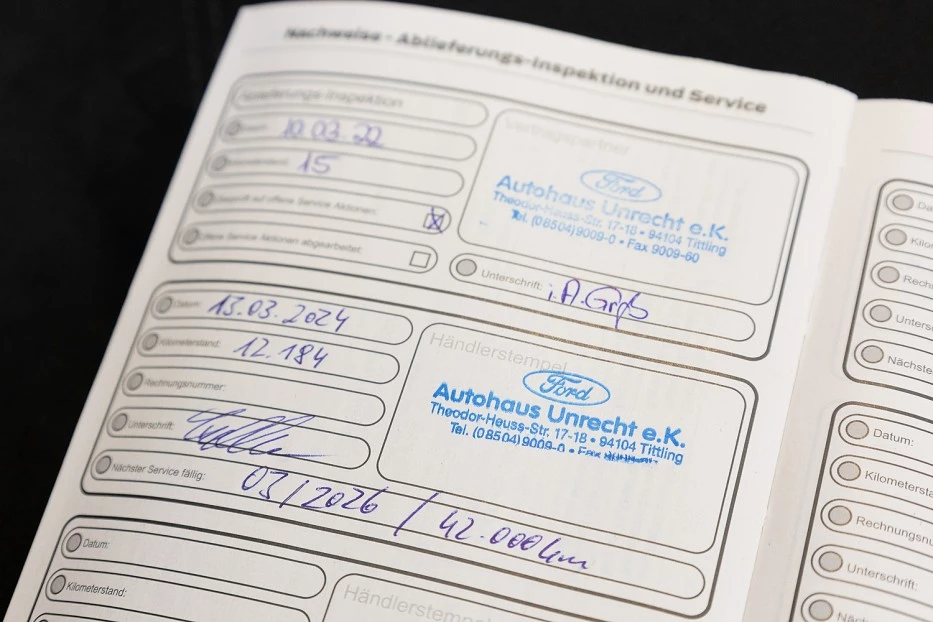 Nachweise - Ablieferungs-Inspektion und Service
Ablieferungs-Inspektion
Datum: 10.03.22
Kilometerstand: 15
Überprüft auf offene Service Aktionen:
Offene Service Aktionen abgearbeitet:
Vertragspartner
Ford
Autohaus Unrecht e.K.
Theodor-Heuss-Str. 17-18 • 94104 Tittling
Tel. (08504) 9009-0 • Fax 9009-60
Unterschrift: i.A.
Datum: 13.03.2024
Kilometerstand: 12.184
Rechnungsnummer:
Unterschrift:
Nächster Service fällig: 03/2026 / 42.000 km
Händlerstempel
Ford
Autohaus Unrecht e.K.
Theodor-Heuss-Str. 17-18 • 94104 Tittling
Tel. (08504) 9009-0 • Fax
Datum:
Kilometerstand:
Händlerstempel
Da
Kilo
Rech
Unters
Nächste
Datum:
Kilometersta
Rechnungsnu
Unterschrift:
Näch